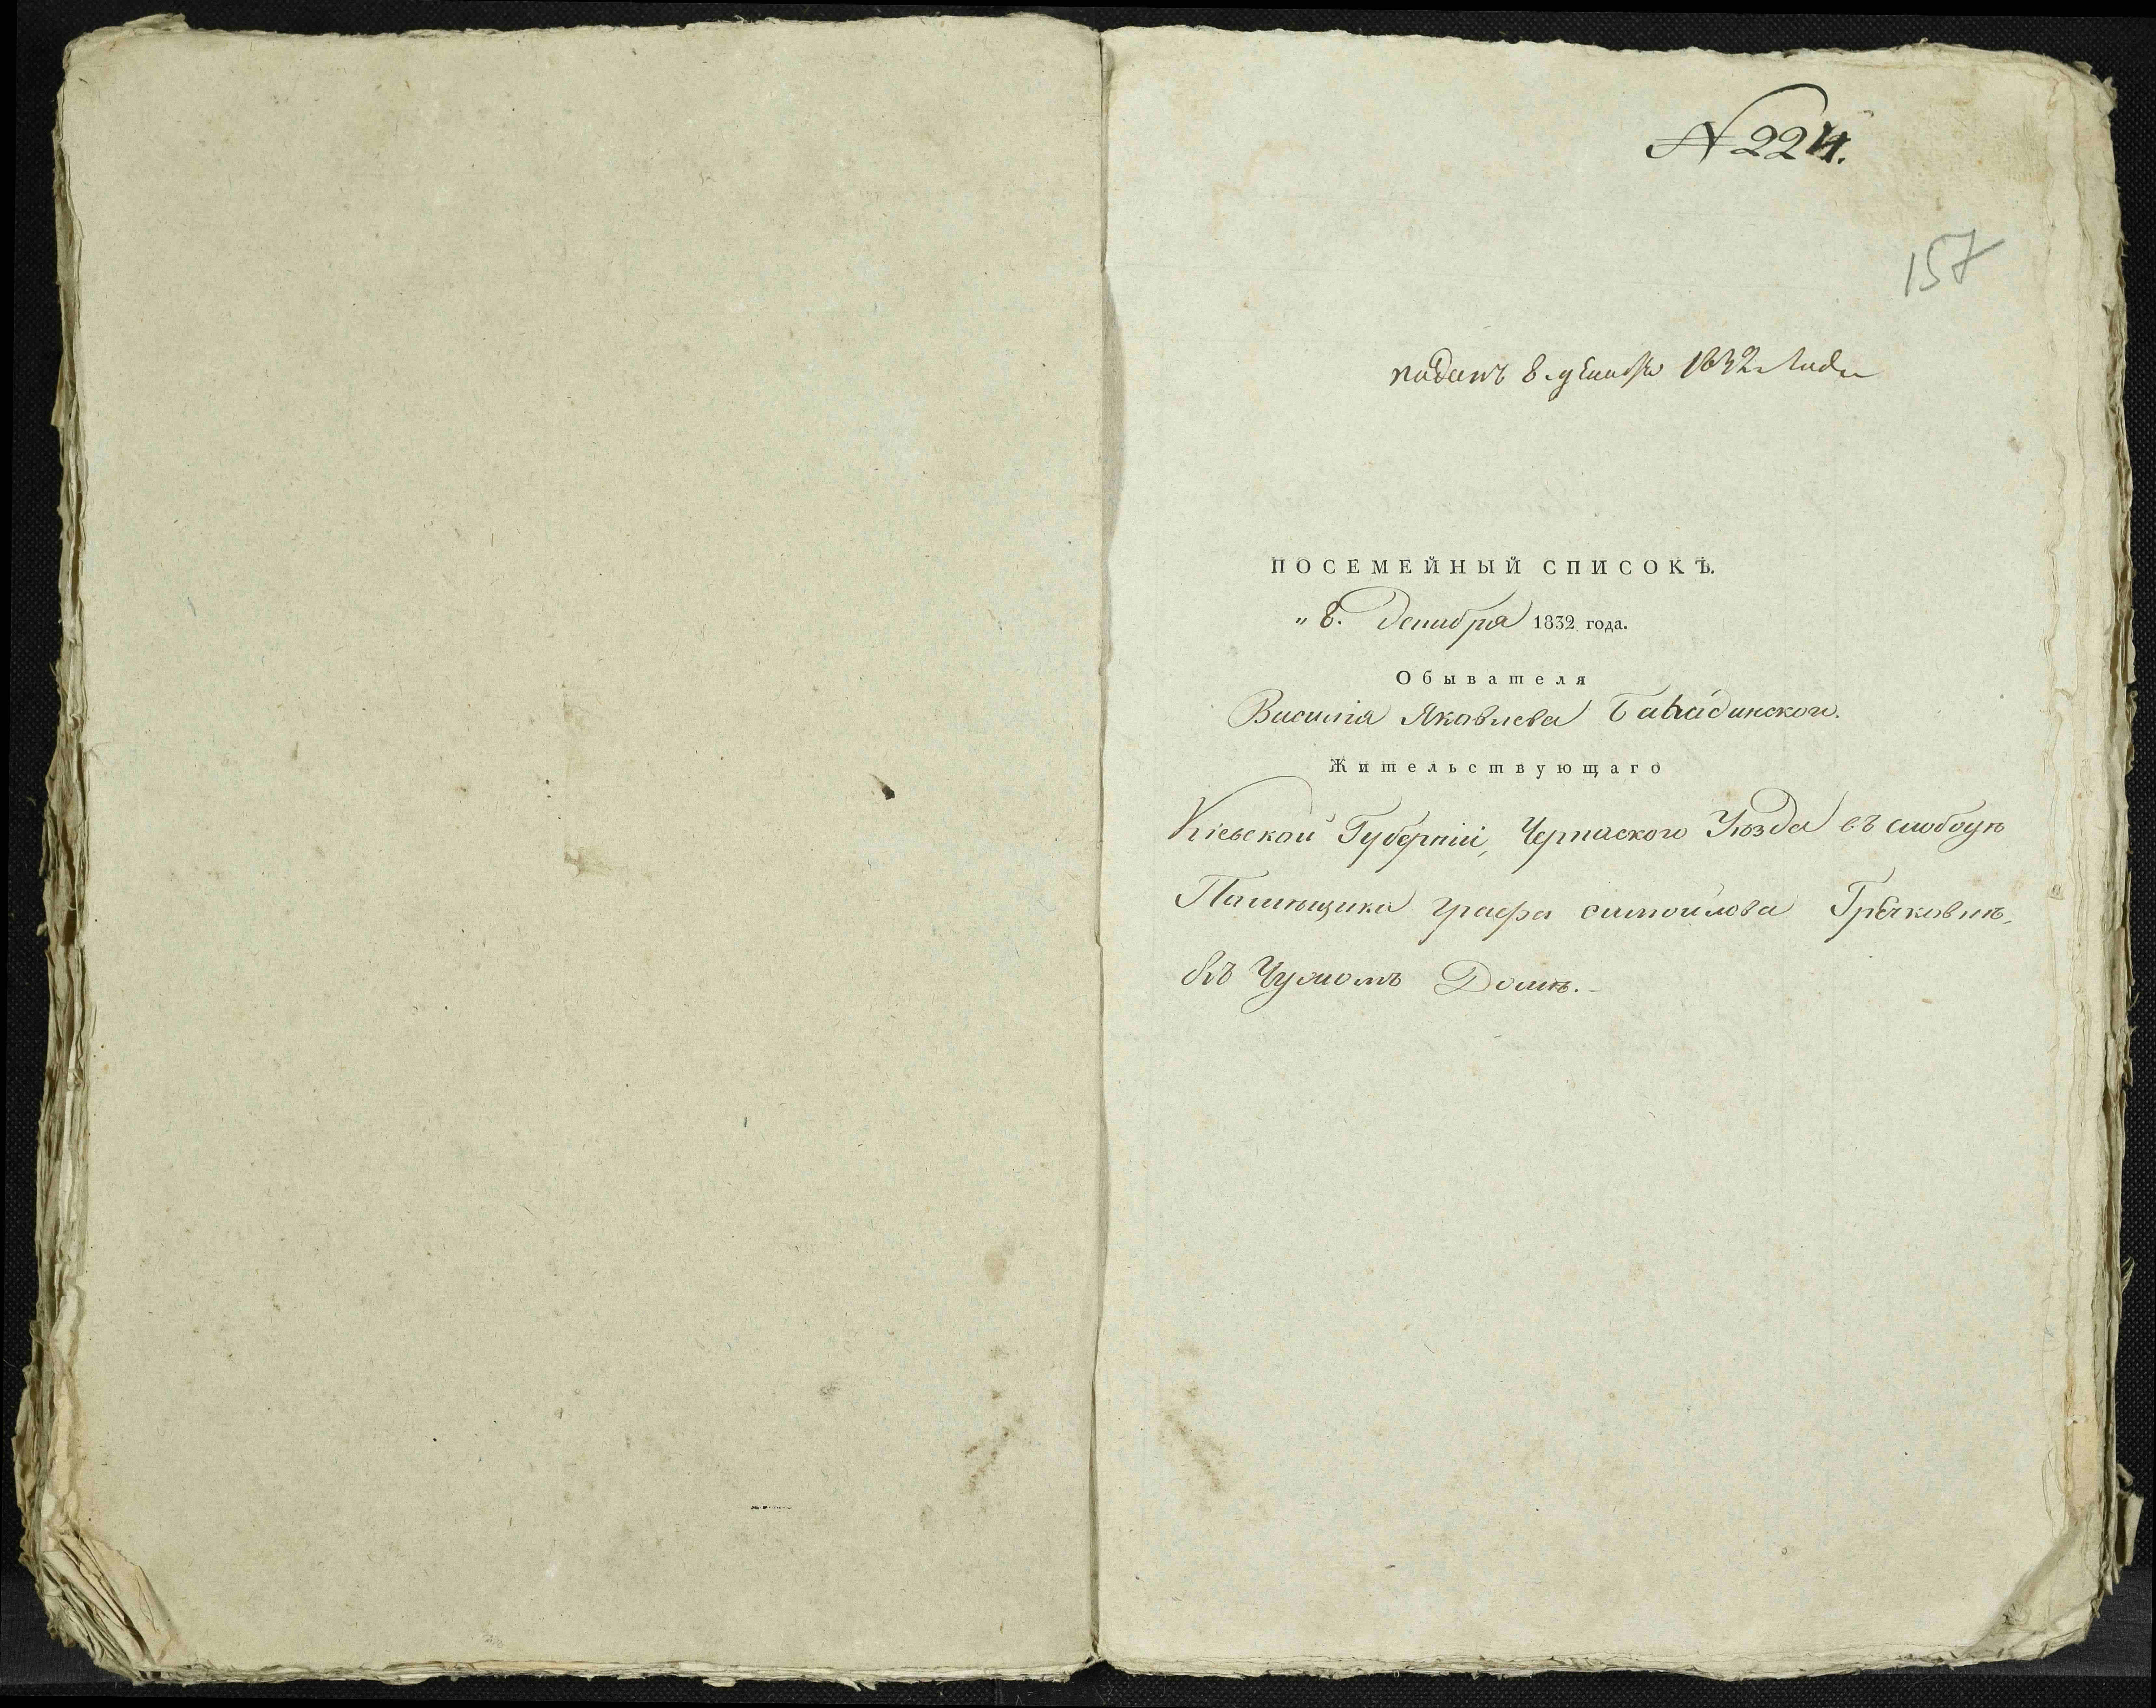 № 224.
157
поданъ 8 декабря 1832 года
ПОСЕМЕЙНЫЙ СПИСОКЪ.
„ 8. Декабря 1832 года.
Обывателя
Василія Яковлева
Жительствующаго
Кіевской Губерніи, Черкаского Уюзда въ слободѣ
Памѣщика графа самойлова Грѣчковкѣ,
въ Чужомъ Домѣ.